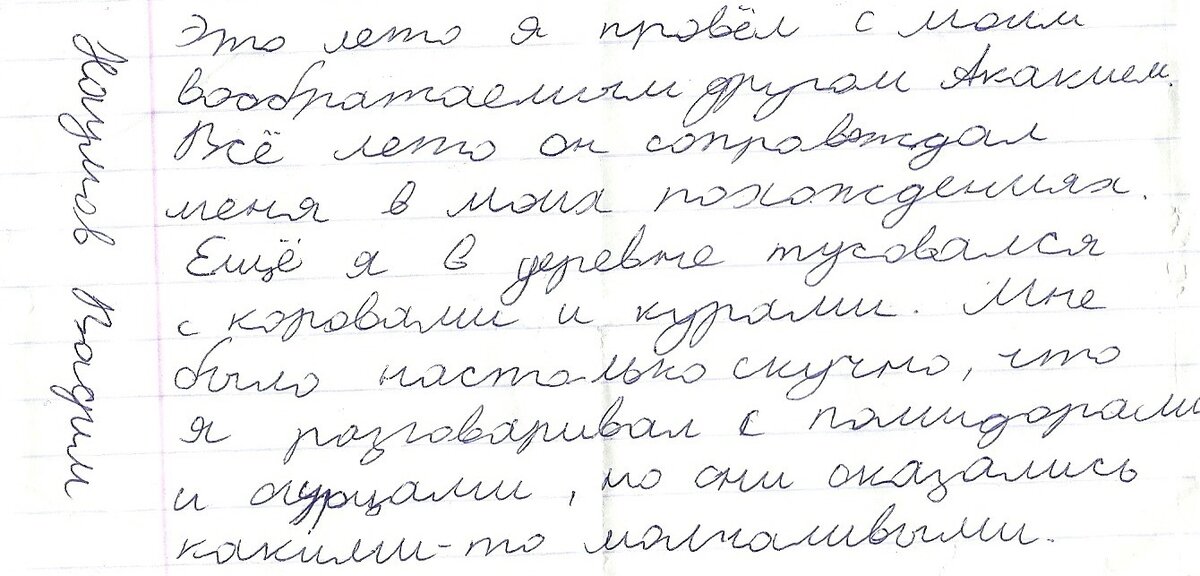 Это лето я провёл с моим
вообратаемым другом Акакием.
Всё лето он сопровждал
меня в моих похождениях.
Ещё я в деревне тусовался
с коровами и курами. Мне
было настолько скучно, что
я разговаривал с помидорами
и огурцами, но они оказались
какими-то молчаливыми.
Наумов Вадим